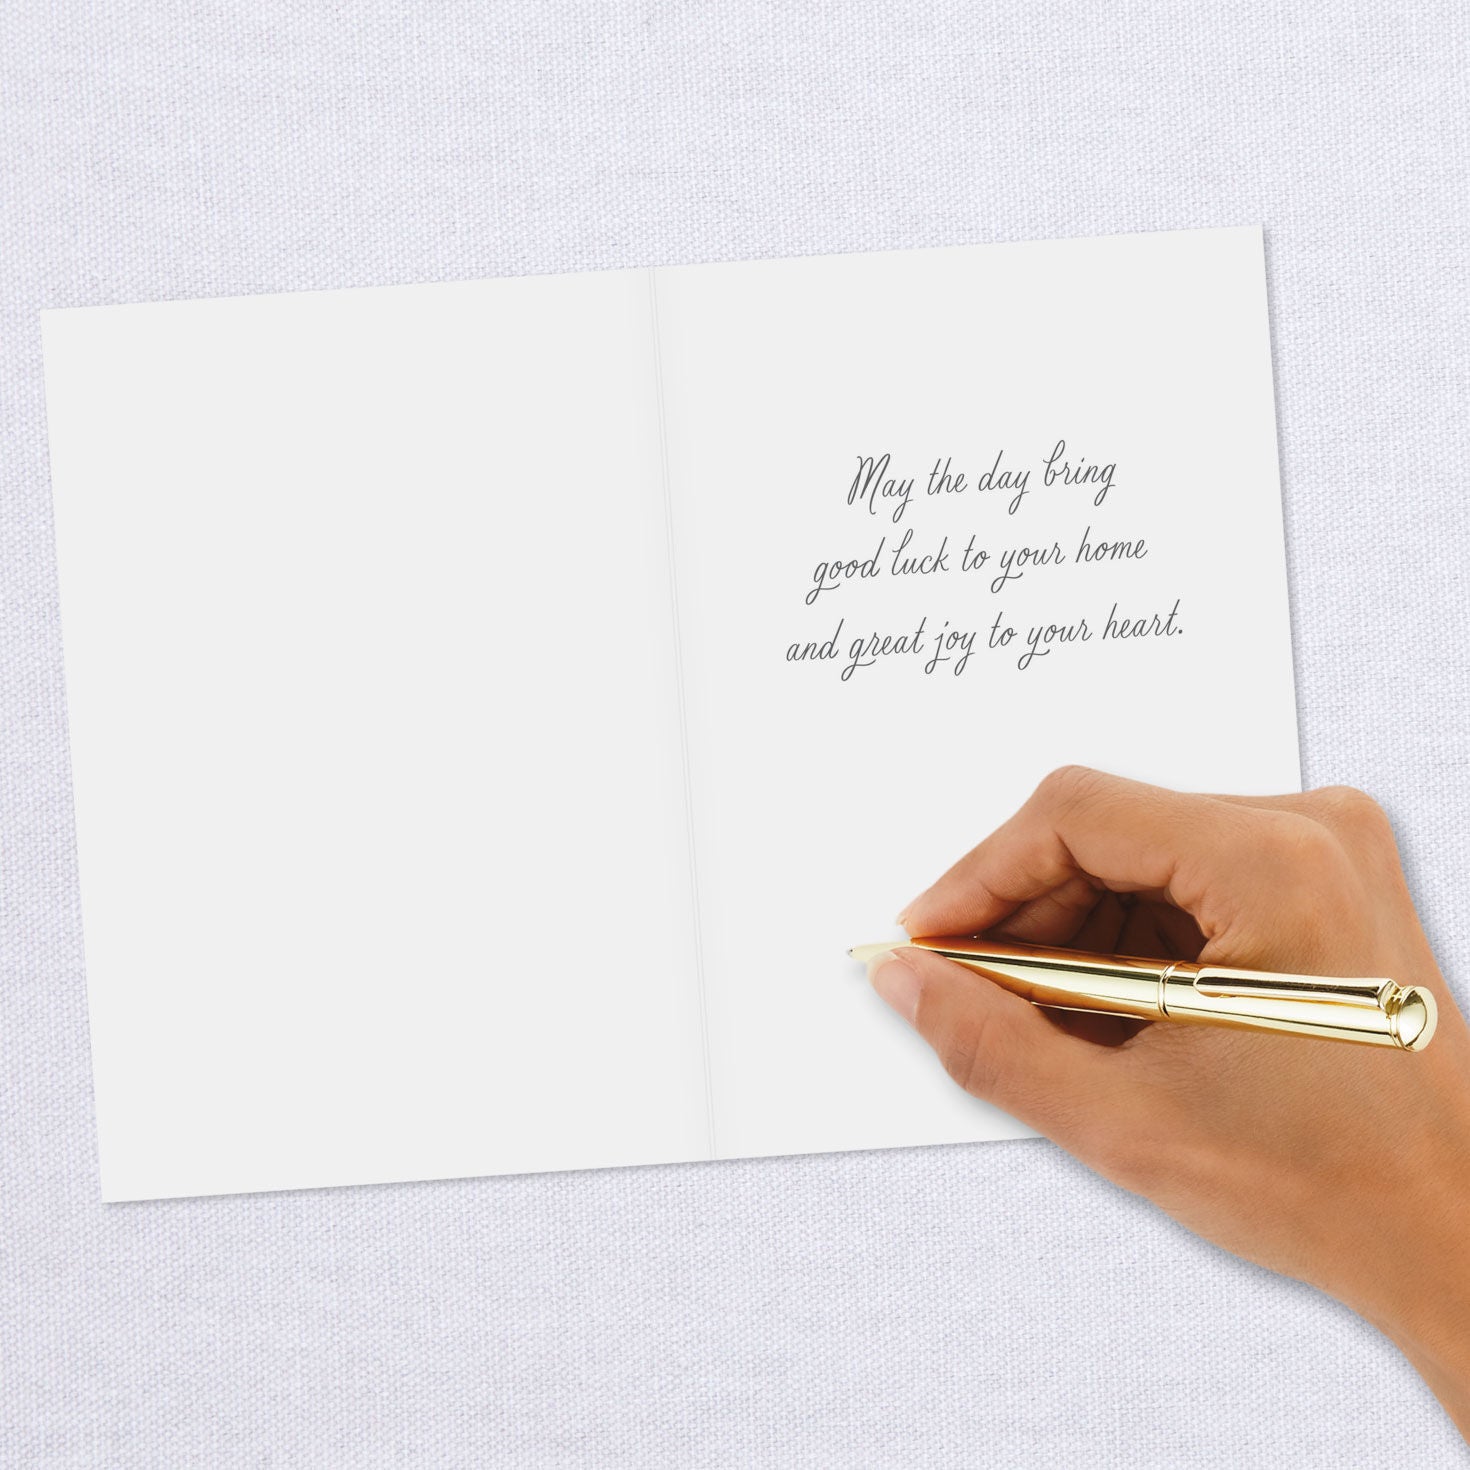 May the day bring
good luck to your home
and great joy to your heart.